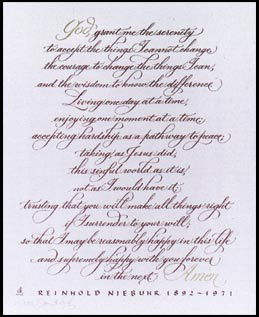 God, grant me the serenity
to accept the things I cannot change,
the courage to change the things I can,
and the wisdom to know the difference
Living one day at a time,
enjoying one moment at a time,
accepting hardship as a pathway to peace,
taking, as Jesus did,
this sinful world as it is,
not as I would have it;
trusting that you will make all things right
if I surrender to your will,
so that I may be reasonably happy in this life
and supremely happy with you forever
in the next. Amen
REINHOLD NIEBUHR 1892–1971